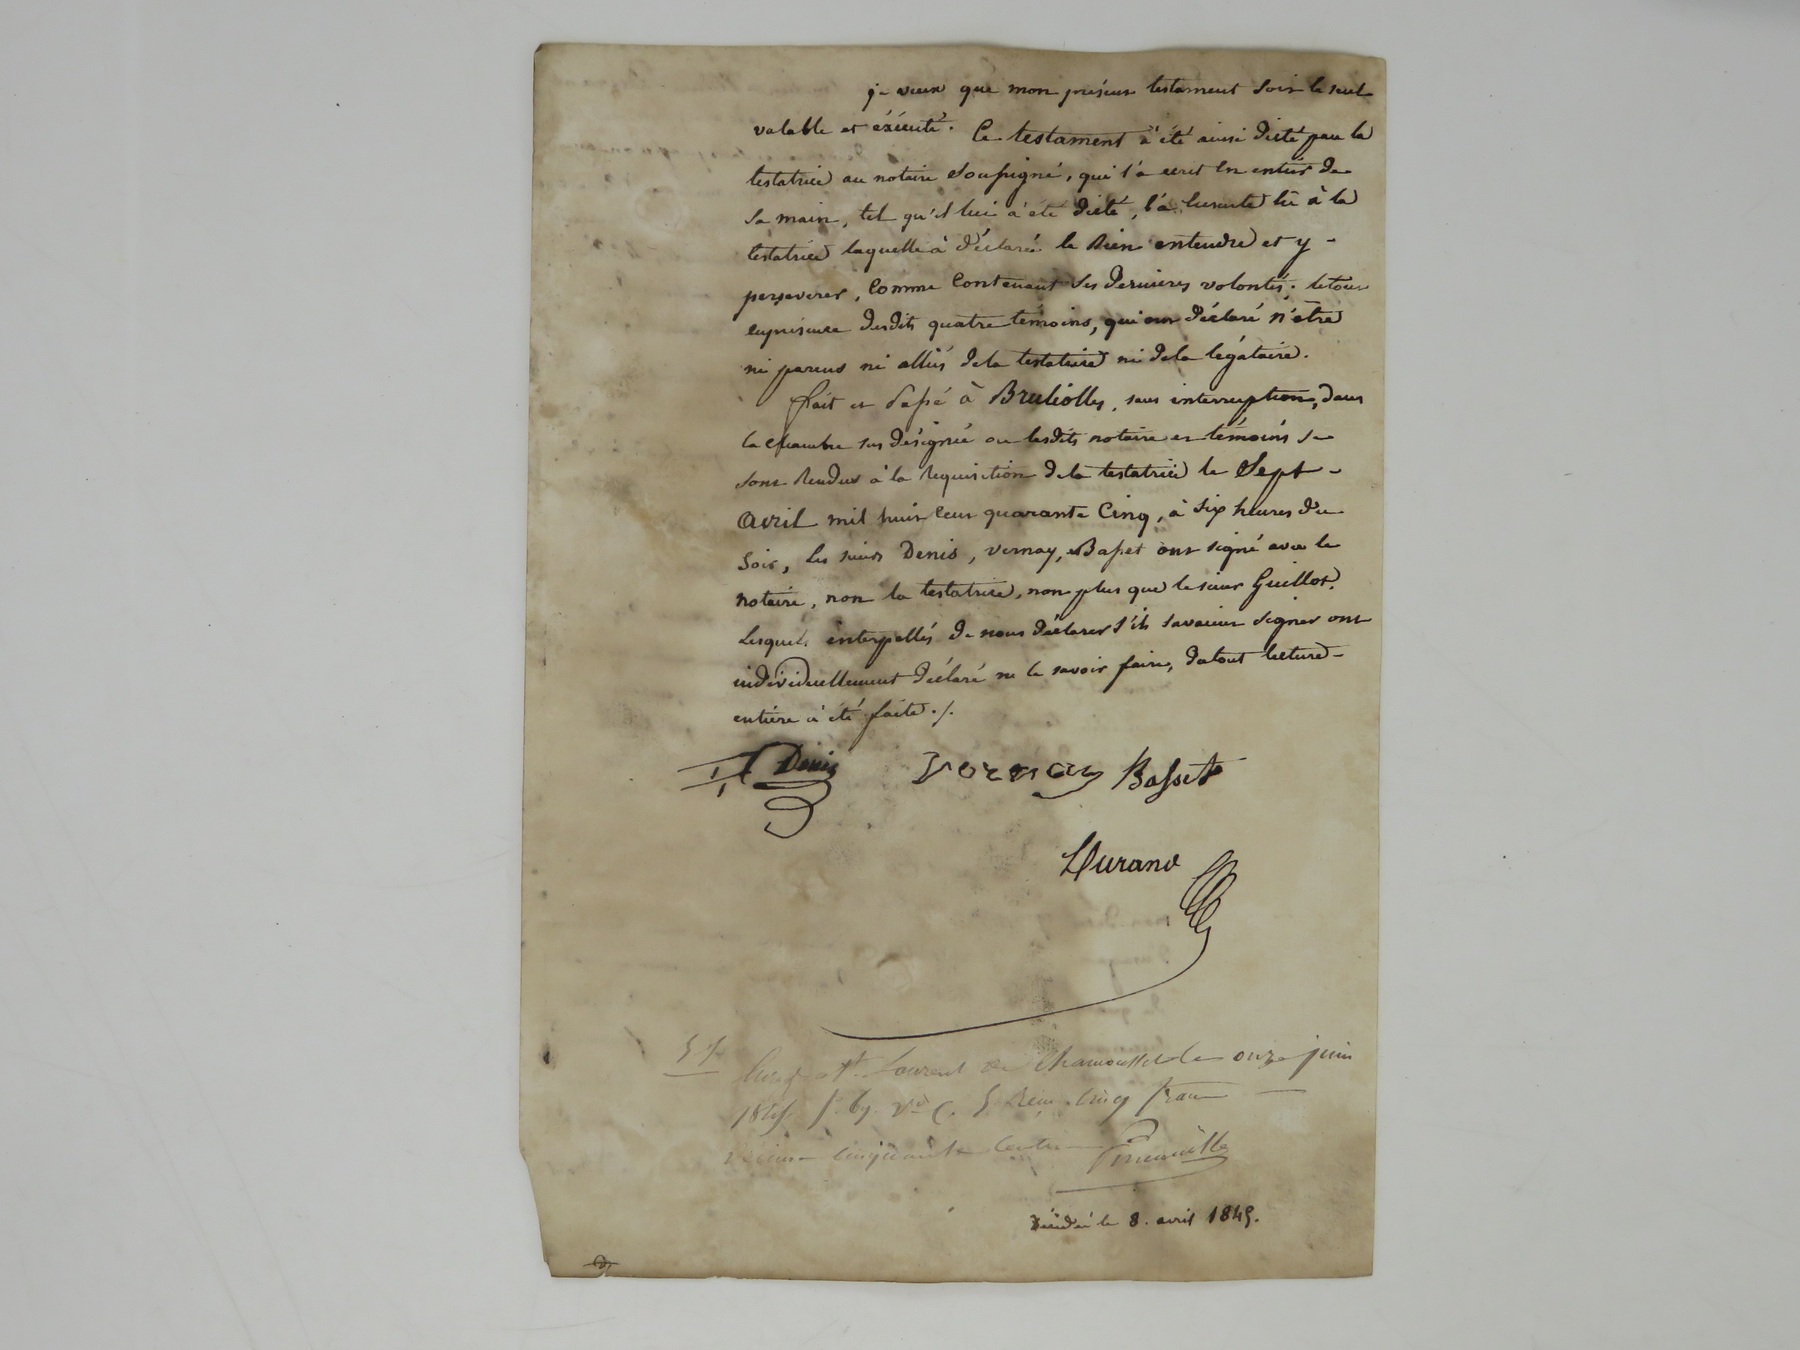 je veux que mon présent testament soit le seul
valable et éxécuté. Ce testament à été ainsi dicté par la
testatrice au notaire soussigné, qui l'a ecrit en entier de
sa main, tel qu'il lui a été dicté, l'a ensuite lu à la
testatrice laquelle à déclaré le bien entendre et y -
perseverer, comme contenant ses dernieres volontés. le tout
en présence desdits quatre témoins, qui ont déclaré n'être
ni parens ni alliés de la testatrice ni de la légataire.
fait et passé à Brulioles, sans interruption, dans
la chambre sus désignée ou lesdits notaire et témoins se
sont rendus à la requisition de la testatrice le sept -
avril mil huit cent quarante cinq, à six heures du
soir, les sieurs Denis, vernay, Basset ont signé avec le
notaire, non la testatrice, non plus que le sieur Guillot.
Lesquels interpellés de nous déclarer s'ils savaient signer ont
individuellement déclaré ne le savoir faire, du tout lecture -
entière à été faite ./.
Denis vernay Basset
Durand
5 f
St. Laurent de Chamousset le onze juin
1845 f. 69 Vo C. 5 Reçu cinq francs
décime cinquante centimes
Décédé le 8. avril 1845.